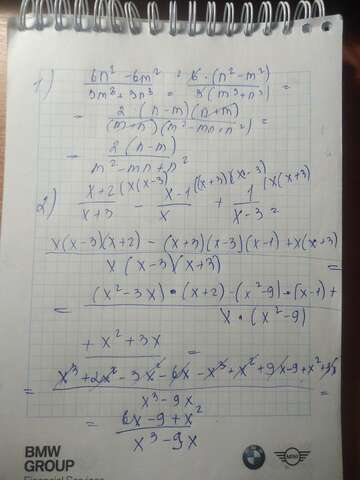 1) (6n² - 6m²)/(3m³ + 3n³) = 6·(n² - m²)/3(m³ + n³) =
= 2(n-m)(n+m)/(m+n)(m²-mn+n²) =
= 2(n-m)/m²-mn+n²
2) x+2/x+3 (x(x-3) - x-1/x ((x+3)(x-3) + 1/x-3 (x(x+3) =
x(x-3)(x+2) - (x+3)(x-3)(x-1) + x(x+3)/x(x-3)(x+3) =
= (x²-3x)·(x+2)-(x²-9)·(x-1)+/x·(x²-9)
+x²+3x =
= x³+2x²-3x²-6x-x³+x²+9x-9+x²+3x/x³-9x =
= 6x-9+x²/x³-9x
BMW
GROUP
Financial Services
BMW
MINI